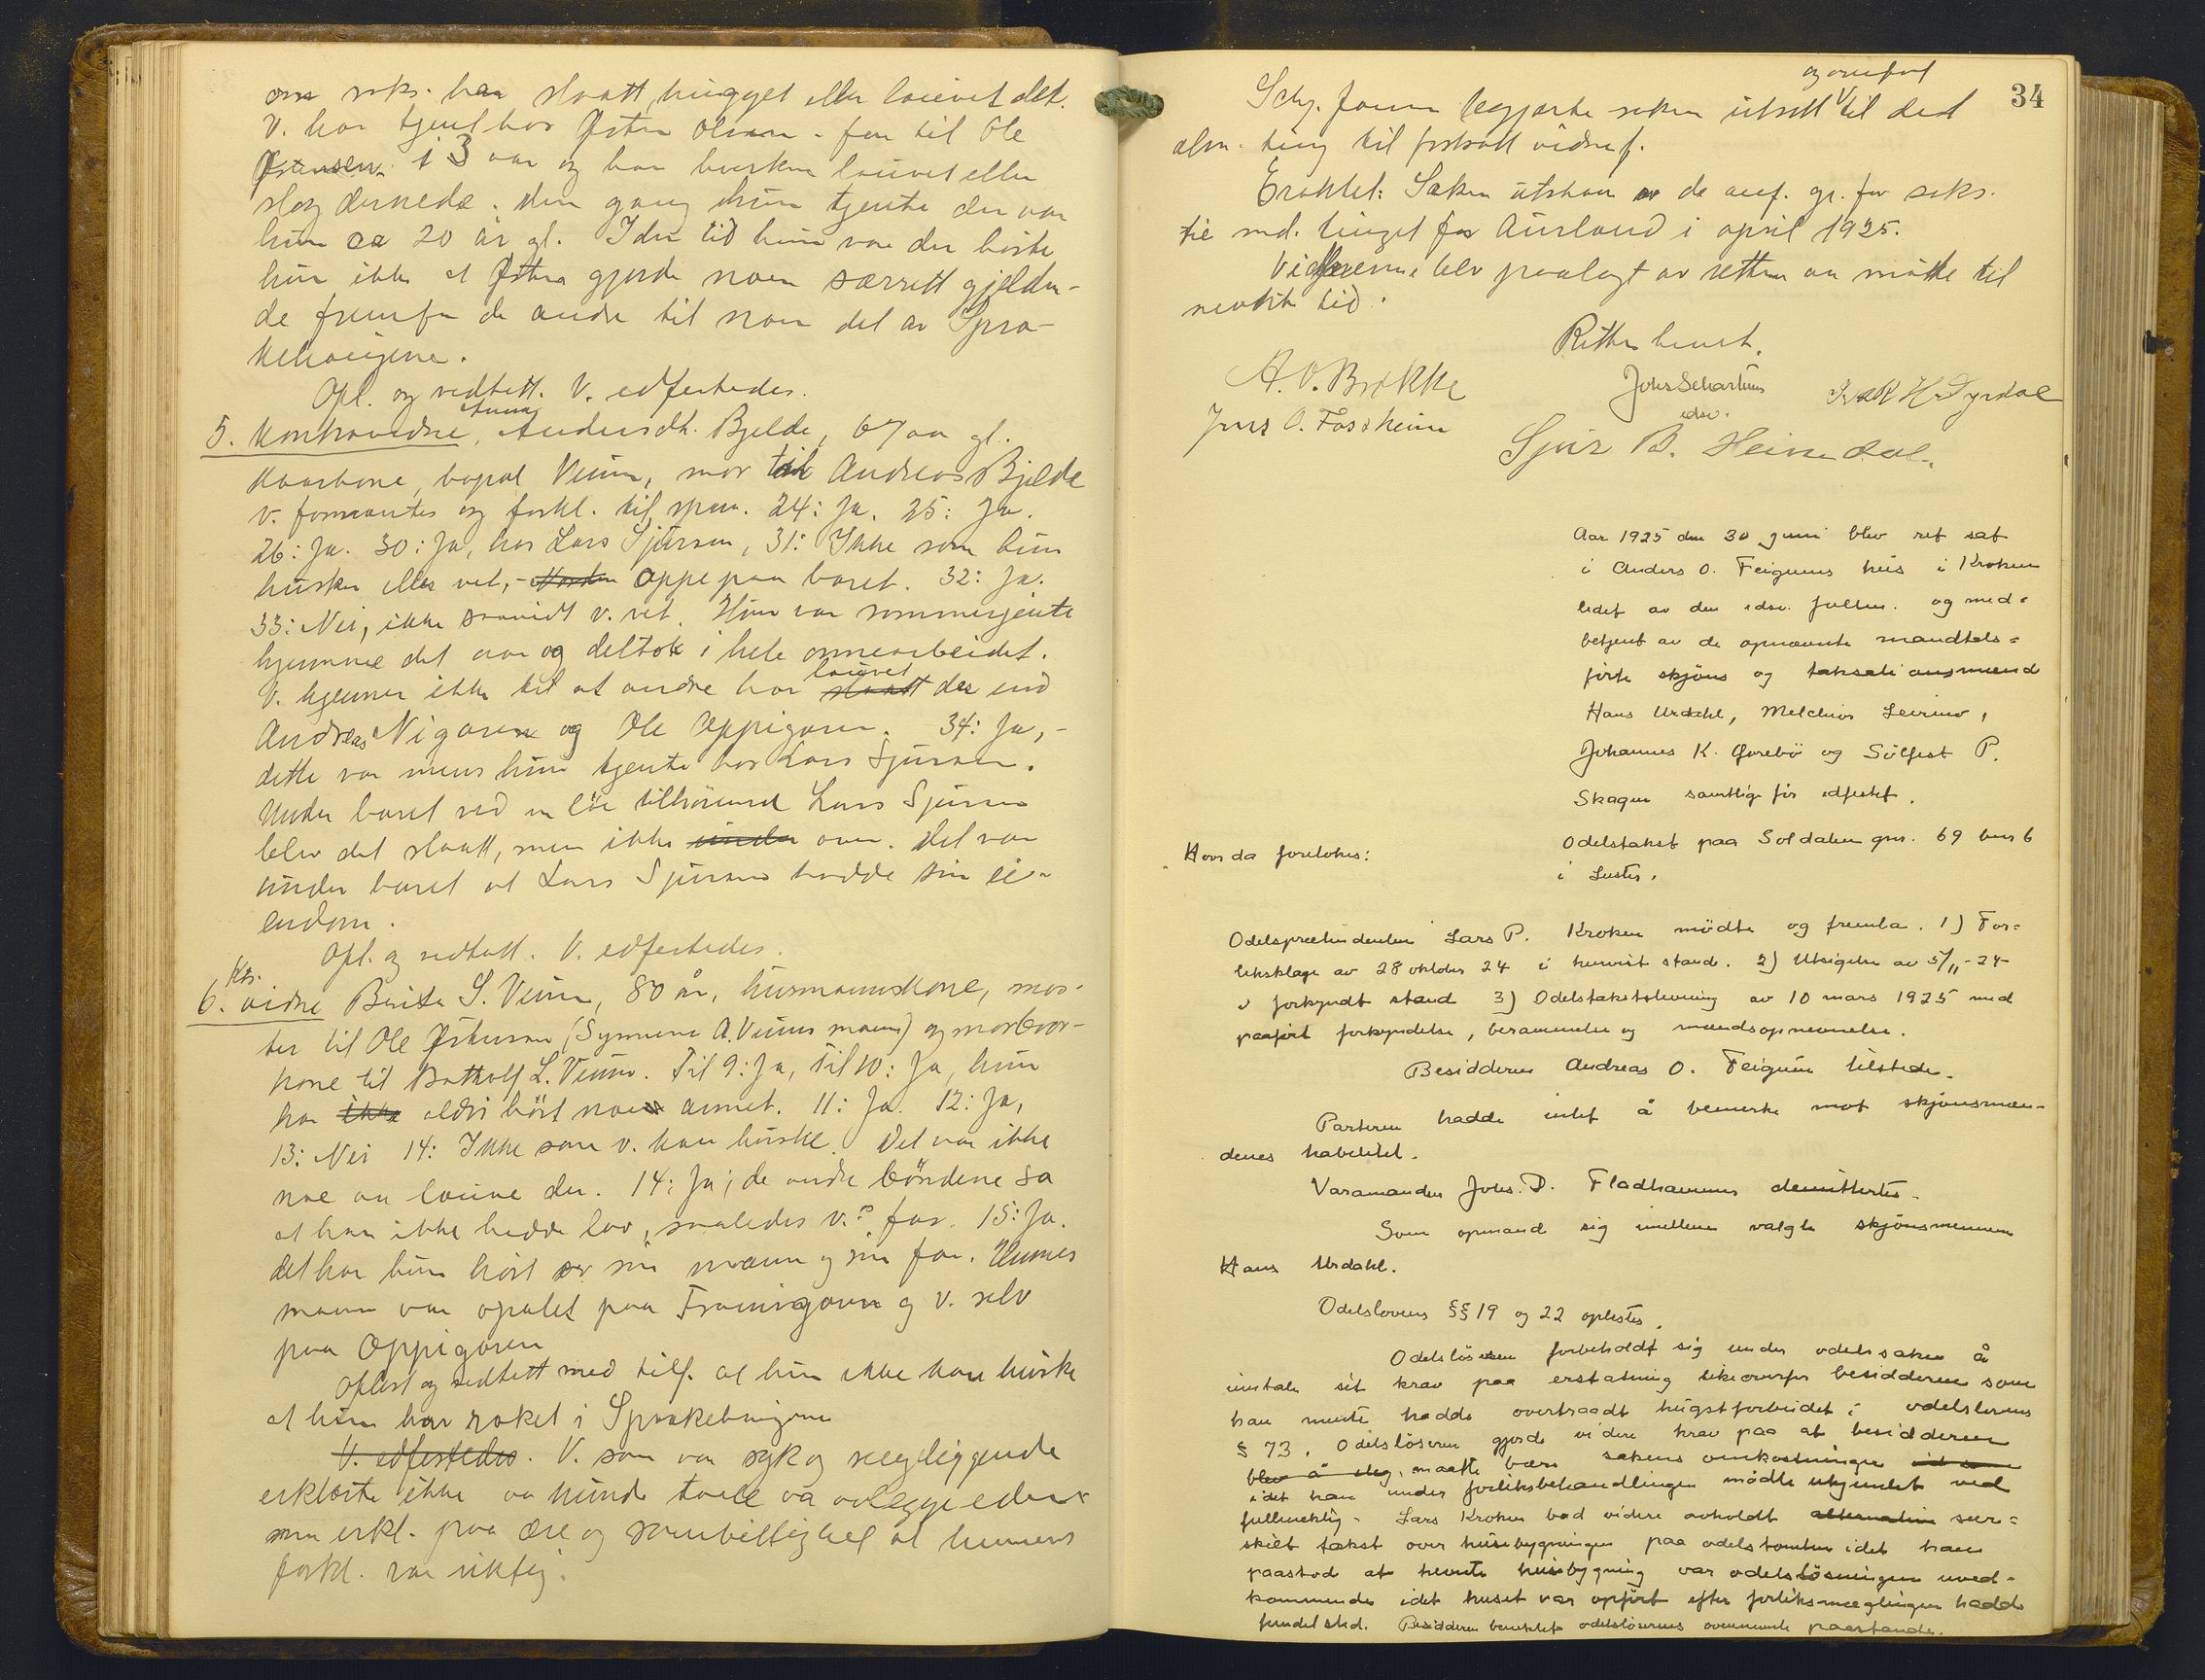 om saks. har slaatt, hugget eller lauvet det.
V. har tjent hos Østen Olsen - far til Ole
Østensen i 3 aar og har hverken lauvet eller
slog dernede. Den gang hun tjente der var
hun ca 20 år gl. I den tid hun var der hørte
hun ikke at Østen gjorde noen særrett gjelden-
de fremfor de andre til noen del av Spra-
kehaugene.
Opl. og vedtatt. V. edfestedes.
5. Kontravidne, Anna Andersdt. Bjelde, 67 aar gl.
Kaarkone, bopæl Veum, mor til Andreas Bjelde
V. formantes og forkl. til spm. 24: Ja. 25: Ja.
26: Ja. 30: Ja, hos Lars Sjursen, 31: Ikke som hun
husker eller vet, - oppe paa baret. 32: Ja.
33: Nei, ikke saavidt v. vet. Hun var sommerjente
hjemme det aar og deltok i hele onnearbeidet.
V. kjenner ikke til at andre har slaatt lauvet der end
Andreas Nigaren og Ole Oppigaren. 34: Ja, -
dette var mens hun tjente hos Lars Sjursen.
Under baret ved en løe tilhørende Lars Sjursen
blev det slaatt, men ikke under over. Det var
under baret at Lars Sjursen hadde sin ei-
endom.
Opl. og vedtatt. V. edfestedes.
6. Ktr. vidne Brita S. Veum, 80 år, husmannskone, mos-
ter til Ole Østensen (Synneve A. Veums mann) og morbror-
kone til Botholf L. Veum. Til 9: Ja, til 10: Ja, hun
har ikke aldri hört noen annet. 11: Ja. 12: Ja,
13: Nei 14: Ikke som v. kan huske. Det var ikke
noe au lauve der. 14: Ja; de andre bøndene sa
at han ikke hadde lov, saaledes v.s far. 15: Ja.
det har hun hört av sin mann og sin far. Hennes
mann var opalet paa Framigaren og v. selv
paa Oppigaren
Oplest og vedtatt med tilf. at hun ikke kan huske
at hun har raket i Sprakehaugene
V. edfestedes. V. som var syk og sengeliggende
erklærte ikke aa kunde taale aa avlegge eden
men erkl. paa ære og samvittighet at hennes
forkl. var riktig.
34
Schj. fører begjærte saken utsatt og overført til det
alm. ting til fortsatt vidnef.
Eraktet: Saken utstaar av de anf. gr. for saks.
til md. tinget for Aurland i april 1925.
Vidnerne blev paalagt av retten aa møte til
nevnte tid.
Retten hevet.
A. O. Brekke
Johs Schartum
edsv.
Jens O. Fossheim
Sjur B. Heimdal.
Aar 1925 den 30 juni blev ret sat
i Anders O. Feigums hus i Kroken
ledet av den edsv. fullm. og med-
betjent av de opnævnte mandtals-
førte skjøns og taksationsmænd
Hans Urdahl, Melchior Leirmo,
Johannes K. Ørebö og Sölfest P.
Skagen samtlige før edfestet.
Hvor da foretokes:
Odelstakst paa Soldalen gnr. 69 bnr 6
i Luster.
Odelsprætendenten Lars P. Kroken mødte og fremla. 1) For-
liksklage av 28 oktober 24 i henvist stand. 2) Utsigelse av 5/11 - 24
i forkyndt stand 3) Odelstakststevning av 10 mars 1925 med
paaført forkyndelse, berammelse og mandsopnevnelse.
Besidderen Andreas O. Feigum tilstede.
Parterne hadde intet å bemerke mot skjønsmæn-
denes habilitet.
Varamanden Johs. D. Fladhammer demittertes.
Som opmand sig imellem valgte skjønsmennene
Hans Urdahl.
Odelslovens §§ 19 og 22 oplestes.
Odelsløseren forbeholdt sig under odelssaken å
inntale sit krav paa erstatning likeoverfor besidderen som
han mente hadde overtraadt hugstforbudet i odelslovens
§ 73. Odelsløseren gjorde videre krav paa at besidderen
maatte bære sakens omkostninger
idet han under forliksbehandlingen mødte uhjemlet ved
fullmektig - Lars Kroken bad videre avholdt alternativ sær-
skilt takst over husebygningen paa odelstomten idet han
paastod at nevnte husebygning var odelsløsningen uved-
kommende idet huset var opført efter forliksmeglingen hadde
funnet sted. Besidderen benektet odelsløserens ovennevnte paastande.